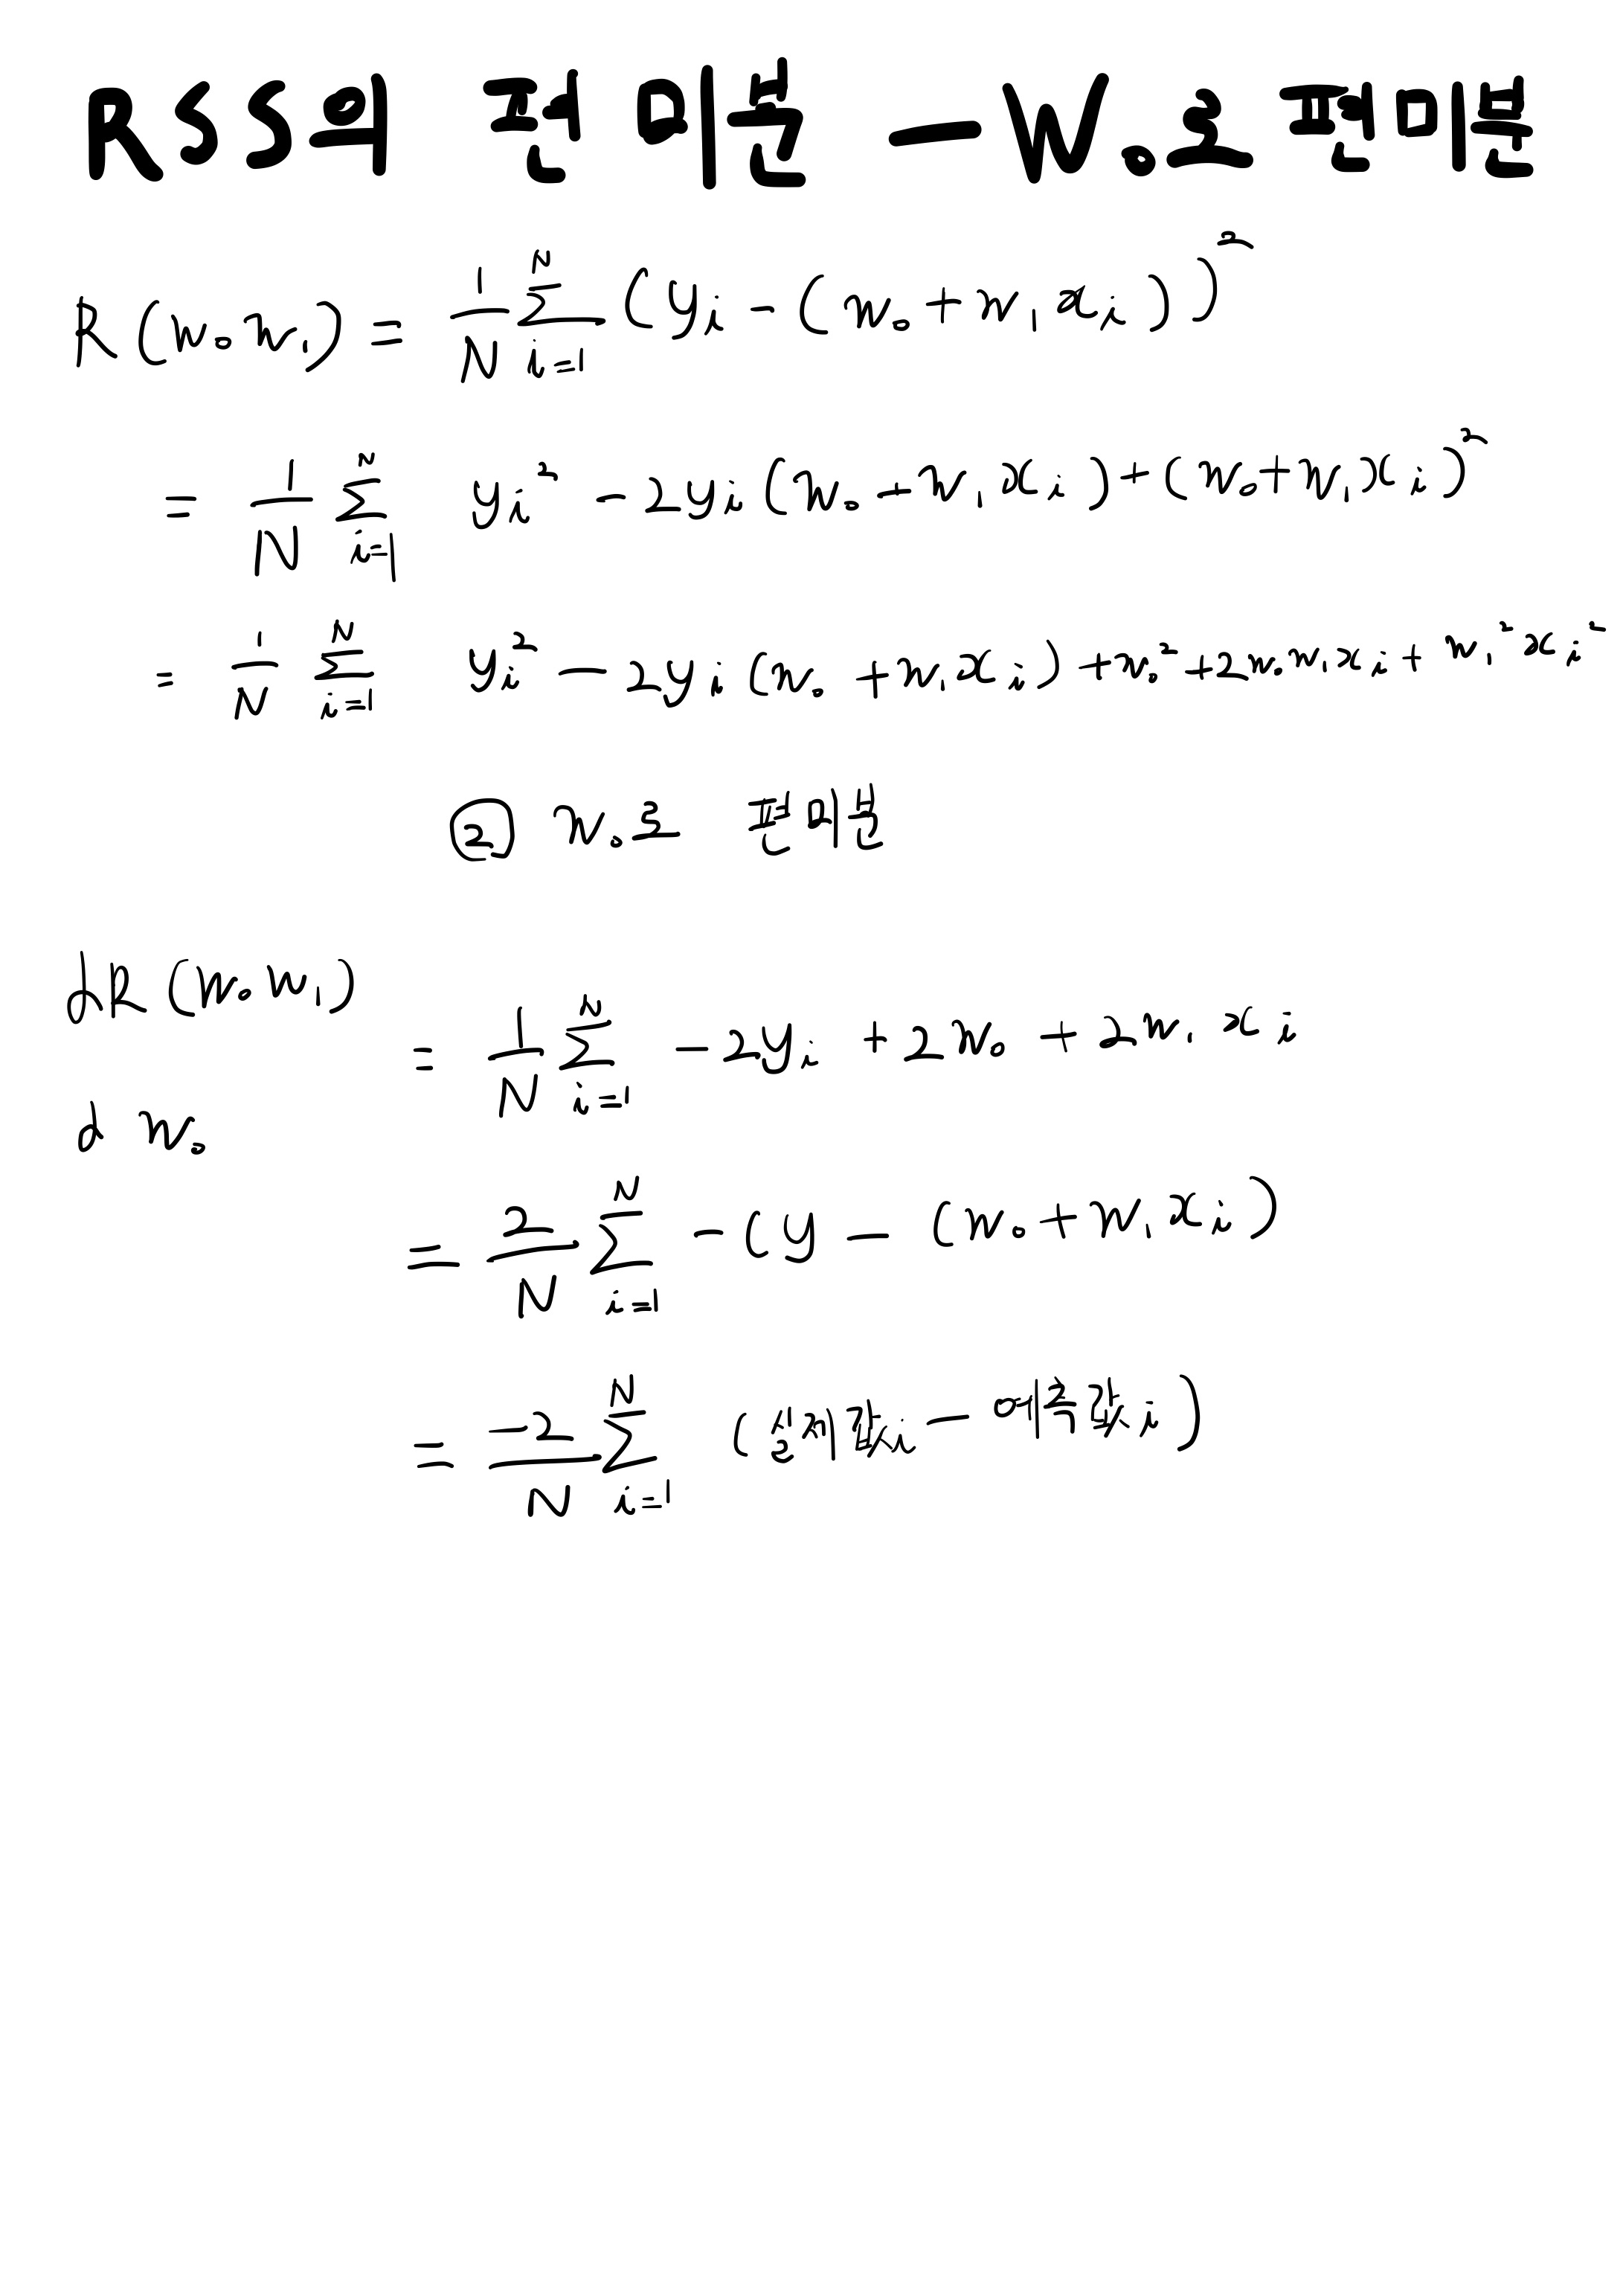 RSS의 편미분 - W₀로 편미분
R(w₀w₁) = 1/N Σ_{i=1}^{N} (yᵢ - (w₀ + w₁xᵢ))²
= 1/N Σ_{i=1}^{N} yᵢ² - 2yᵢ(w₀ + w₁xᵢ) + (w₀ + w₁xᵢ)²
= 1/N Σ_{i=1}^{N} yᵢ² - 2yᵢ(w₀ + w₁xᵢ) + w₀² + 2w₀w₁xᵢ + w₁²xᵢ²
② w₀로 편미분
dR(w₀w₁) / dw₀ = 1/N Σ_{i=1}^{N} - 2yᵢ + 2w₀ + 2w₁xᵢ
= 2/N Σ_{i=1}^{N} - (y - (w₀ + w₁xᵢ)
= -2/N Σ_{i=1}^{N} (실제값ᵢ - 예측값ᵢ)